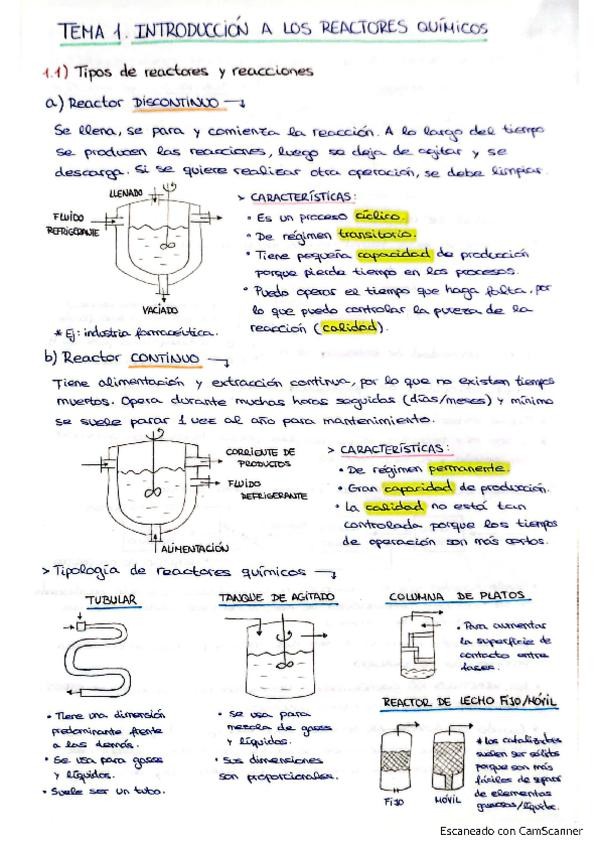 TEMA 1. INTRODUCCIÓN A LOS REACTORES QUÍMICOS
1.1) Tipos de reactores y reacciones
a) Reactor DISCONTINUO →
Se llena, se para y comienza la reacción. A lo largo del tiempo
se producen las reacciones, luego se deja de agitar y se
descarga. Si se quiere realizar otra operación, se debe limpiar.
LLENADO
FLUÍDO
REFRIGERANTE
VACIADO
* Ej: industria farmacéutica.
> CARACTERÍSTICAS:
• Es un proceso cíclico.
• De régimen transitorio.
• Tiene pequeña capacidad de producción
porque pierde tiempo en los procesos.
• Puedo operar el tiempo que haga falta, por
lo que puedo controlar la pureza de la
reacción (calidad).
b) Reactor CONTÍNUO →
Tiene alimentación y extracción continua, por lo que no existen tiempos
muertos. Opera durante muchas horas seguidas (días/meses) y mínimo
se suele parar 1 vez al año para mantenimiento.
CORRIENTE DE
PRODUCTOS
FLUÍDO
REFRIGERANTE
ALIMENTACIÓN
> CARACTERÍSTICAS:
• De régimen permanente.
• Gran capacidad de producción.
• La calidad no está tan
controlada porque los tiempos
de operación son más cortos.
> Tipología de reactores químicos →
TUBULAR
• Tiene una dimensión
predominante frente
a las demás.
• Se usa para gases
y líquidos.
• Suele ser un tubo.
TANQUE DE AGITADO
• Se usa para
mezcla de gases
y líquidos.
• Sus dimensiones
son proporcionales.
COLUMNA DE PLATOS
• Para aumentar
la superficie de
contacto entre
fases.
REACTOR DE LECHO FIJO/MÓVIL
FIJO
MÓVIL
* Los catalizadores
suelen ser sólidos
porque son más
fáciles de separar
de elementos
gaseosos/líquidos.
Escaneado con CamScanner